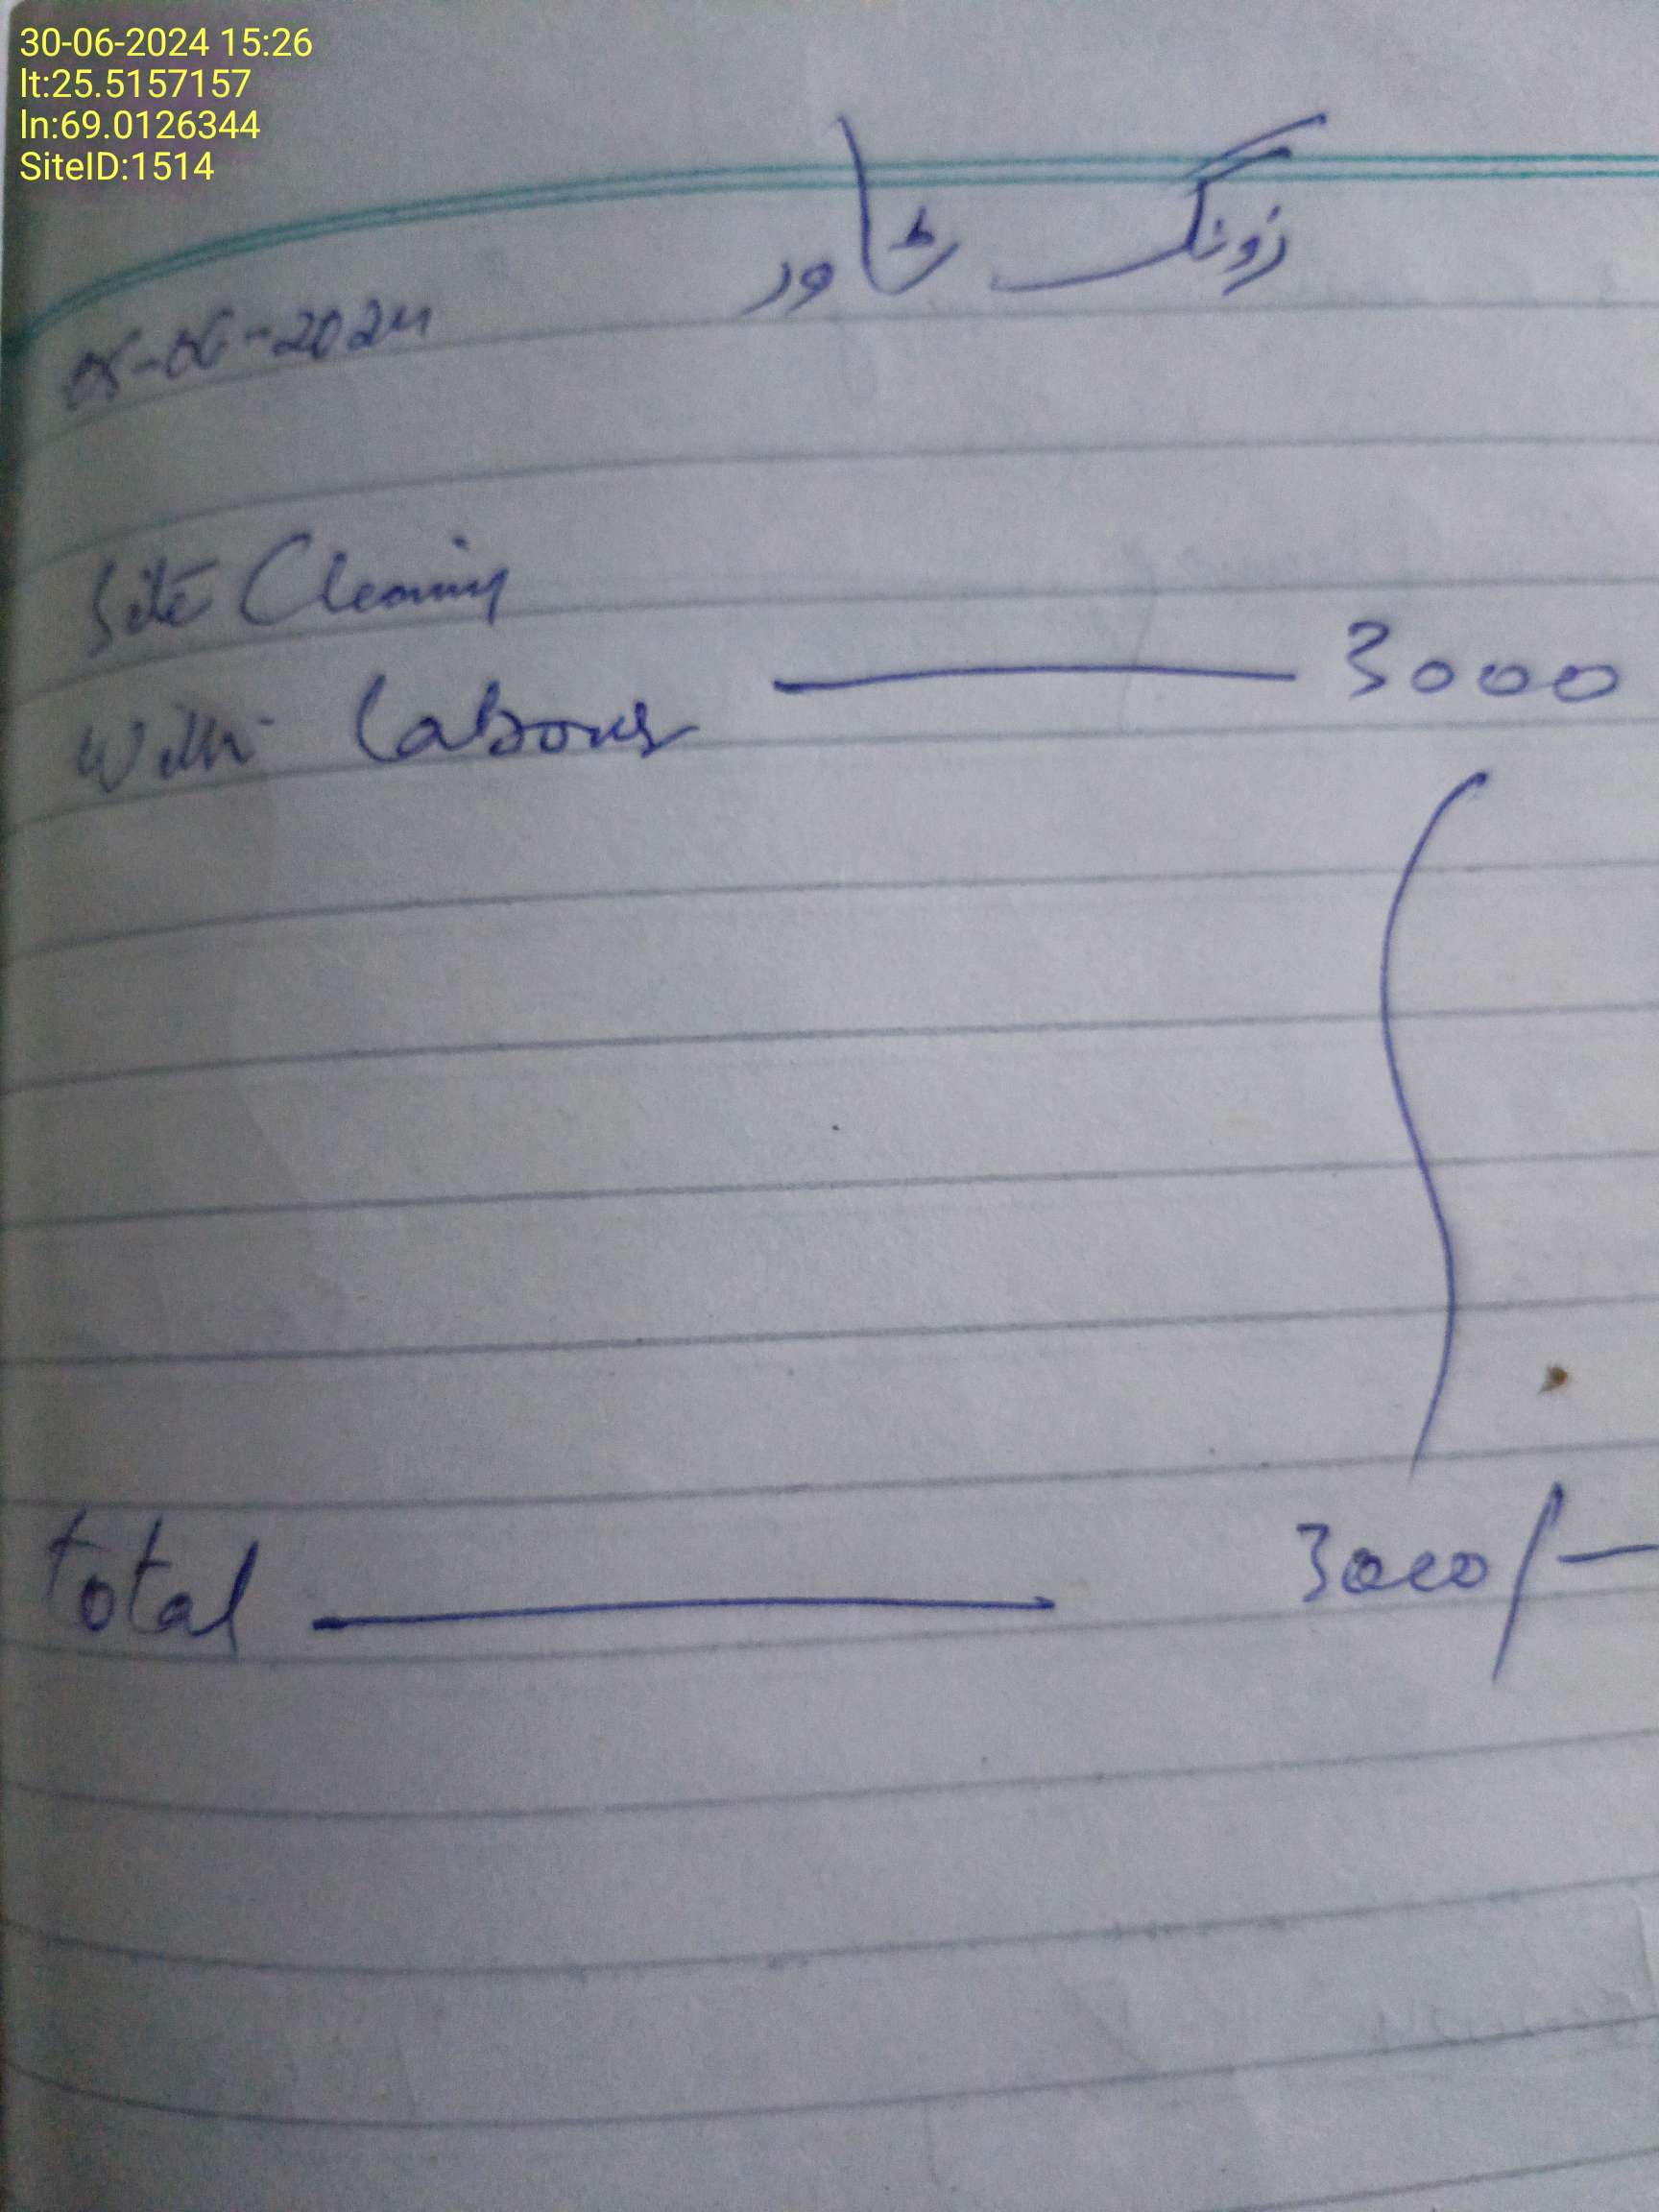 30-06-2024 15:26
lt:25.5157157
ln:69.0126344
SiteID:1514
زونگ ٹاور
05-06-2024
Site Cleaning
With Labour 3000
total 3000/-